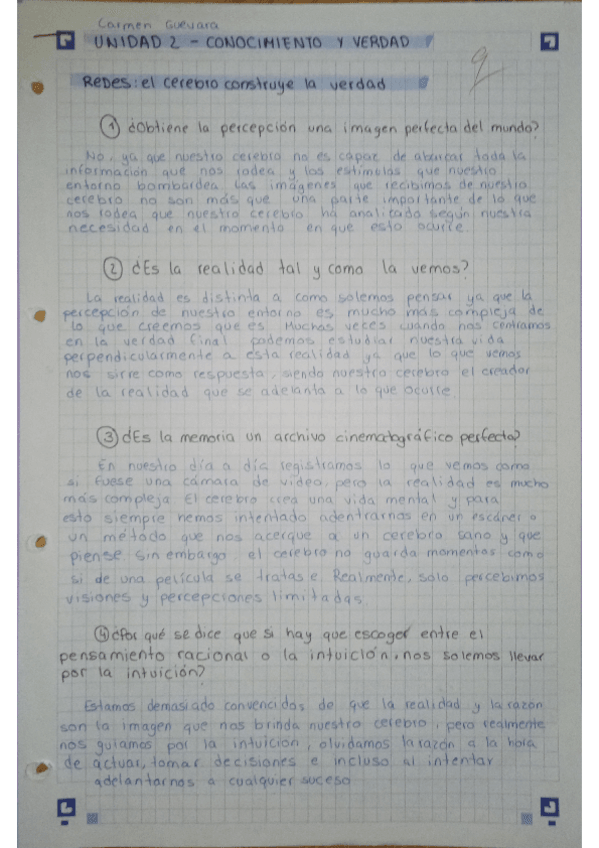 Carmen Guevara
UNIDAD 2 - CONOCIMIENTO Y VERDAD
9
REDES: el cerebro construye la verdad
1 ¿Obtiene la percepción una imagen perfecta del mundo?
No, ya que nuestro cerebro no es capaz de abarcar toda la
información que nos rodea y los estímulos que nuestro
entorno bombardea. Las imágenes que recibimos de nuestro
cerebro no son más que una parte importante de lo que
nos rodea que nuestro cerebro ha analizado según nuestra
necesidad en el momento en que esto ocurre.
2 ¿Es la realidad tal y como la vemos?
La realidad es distinta a como solemos pensar ya que la
percepción de nuestro entorno es mucho más compleja de
lo que creemos que es. Muchas veces cuando nos centramos
en la verdad final podemos estudiar nuestra vida
perpendicularmente a esta realidad ya que lo que vemos
nos sirve como respuesta, siendo nuestro cerebro el creador
de la realidad que se adelanta a lo que ocurre.
3 ¿Es la memoria un archivo cinematográfico perfecto?
En nuestro día a día registramos lo que vemos como
si fuese una cámara de vídeo, pero la realidad es mucho
más compleja. El cerebro crea una vida mental y para
esto siempre hemos intentado adentrarnos en un escáner o
un método que nos acerque a un cerebro sano y que
piense. Sin embargo, el cerebro no guarda momentos como
si de una película se tratase. Realmente, solo percibimos
visiones y percepciones limitadas.
4 ¿Por qué se dice que si hay que escoger entre el
pensamiento racional o la intuición, nos solemos llevar
por la intuición?
Estamos demasiado convencidos de que la realidad y la razón
son la imagen que nos brinda nuestro cerebro, pero realmente
nos guiamos por la intuición, olvidamos la razón a la hora
de actuar, tomar decisiones e incluso al intentar
adelantarnos a cualquier suceso.